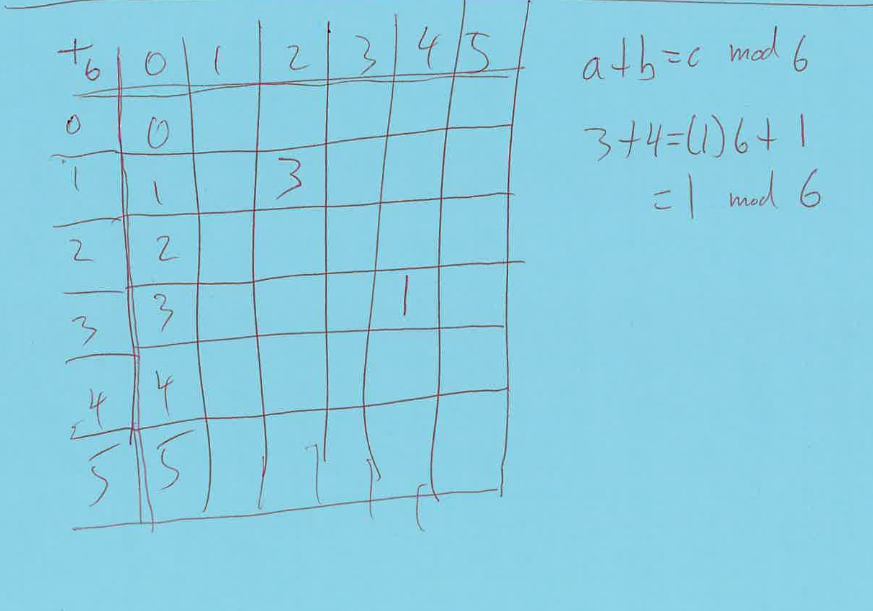 +6 0 1 2 3 4 5
0 0
1 1 3
2 2
3 3 1
4 4
5 5
a+b=c mod 6
3+4=(1)6+1
=1 mod 6